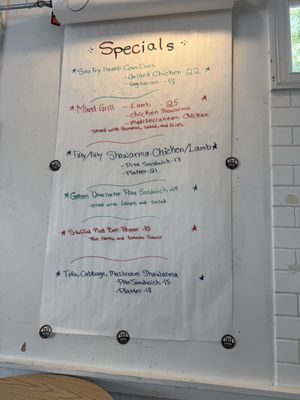 Specials
Stir Fry Israeli Cous Cous
- Grilled Chicken - 22
- Vegetarian - 18
Mixed Grill - Lamb - 25
- chicken Shawarma
- Mediterranean Chicken
Served with Hummus, Salad, and Fries
Fiery/Fiery Shawarma-Chicken/Lamb
- Pita Sandwich - 17
- Platter - 21
Green Omellette Pita Sandwich - 14
- Served with Labneh and Salad
Stuffed Red Bell Pepper - 10
Rice, Herbs and tomato Sauce
Tofu, Cabbage, Mushroom Shawarma
- Pita Sandwich - 15
- Platter - 18